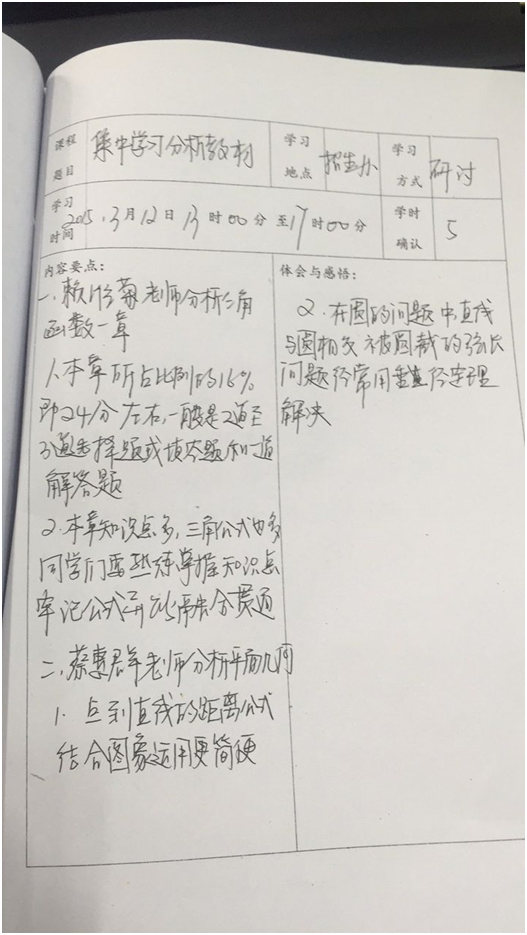 课程题目 集中学习分析教材 学习地点 招生办 学习方式 研讨
学习时间 2015.3月12日13时00分至17时00分 学时确认 5
内容要点：
一、赖 菊老师分析三角
函数一章
1.本章所占比例的16%
即24分左右,一般是2道至
3道选择题或填空题和一道
解答题
2.本章知识点多,三角公式也多
同学们需熟练掌握知识点
牢记公式 融会贯通
二、蔡惠群老师分析平面几何
1.点到直线的距离公式
结合图象运用更简便
体会与感悟：
2.在圆的问题中直线
与圆相交被圆截的弦长
问题经常用垂径定理
解决